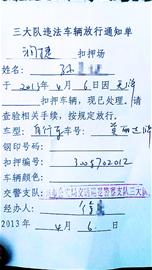 三大队违法车辆放行通知单
润捷 扣押场
姓名：孙
于2013年4月6日因无牌
扣押车辆，现已处理。请
查验相关手续，按规定放行。
车型：自行车 车号：莫
钢印号码：
扣押编号：3005702012
车辆颜色：
交警支队：公安局交通巡逻警察支队三大队
经办人：
2013年4月6日